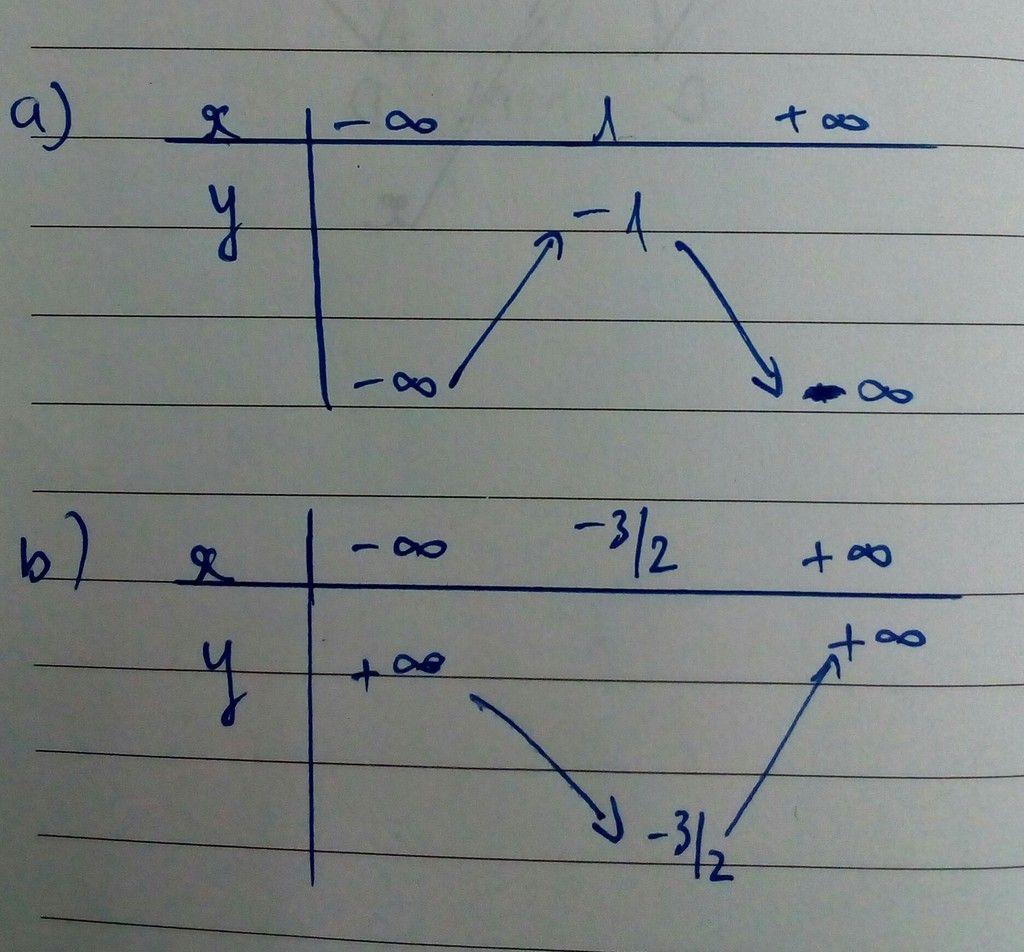 a) x -∞ 1 +∞
y -1
-∞ -∞
b) x -∞ -3/2 +∞
y +∞ +∞
-3/2